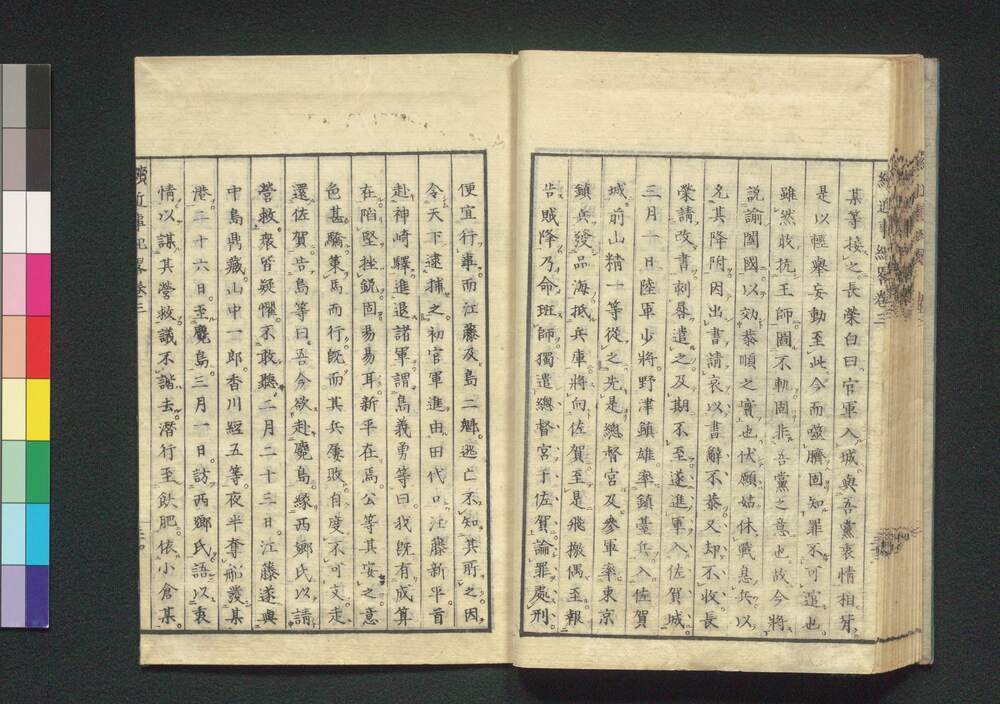 某等接之長榮白曰官軍入城與吾黨衷情相
是以輕舉妄動至此今而噬臍固知罪不可逭也
雖然敢抗王師圖不軌固非吾黨之意也故今將
說諭闔國以効恭順之實也伏願姑休戰息兵以
名其降附因出書請哀以書辭不恭又却不收長
榮請改書刺辱遣之及期不至遂進軍入佐賀城
三月一日陸軍少將野津鎮雄率鎮臺兵入佐賀
城前山精一等從之先是總督宮及參軍率東京
鎮兵發品海抵兵庫將向佐賀至是飛檄偶至報
告賊降乃命班師獨遣總督宮于佐賀論罪處刑
便宜行事而江藤及島二魁逃亡不知其所之因
令天下逮捕之初官軍進由田代口江藤新平首
赴神崎驛進退諸軍謂島義勇等曰我既有成算
在陷堅挫銳固易易耳新平在焉公等其安之意
色甚驕策馬而行既而其兵屢敗自度不可支走
還佐賀告島等曰吾今欲赴麑島緣西鄉氏以請
營救衆皆疑懼不敢聽二月二十三日江藤遂與
中島鼎藏山中一郎香川短五等夜半奪船發某
港二十六日至麑島三月一日訪西鄉氏語以衷
情以謀其營救議不諧去潛行至飫肥依小倉某
續近事紀畧卷三